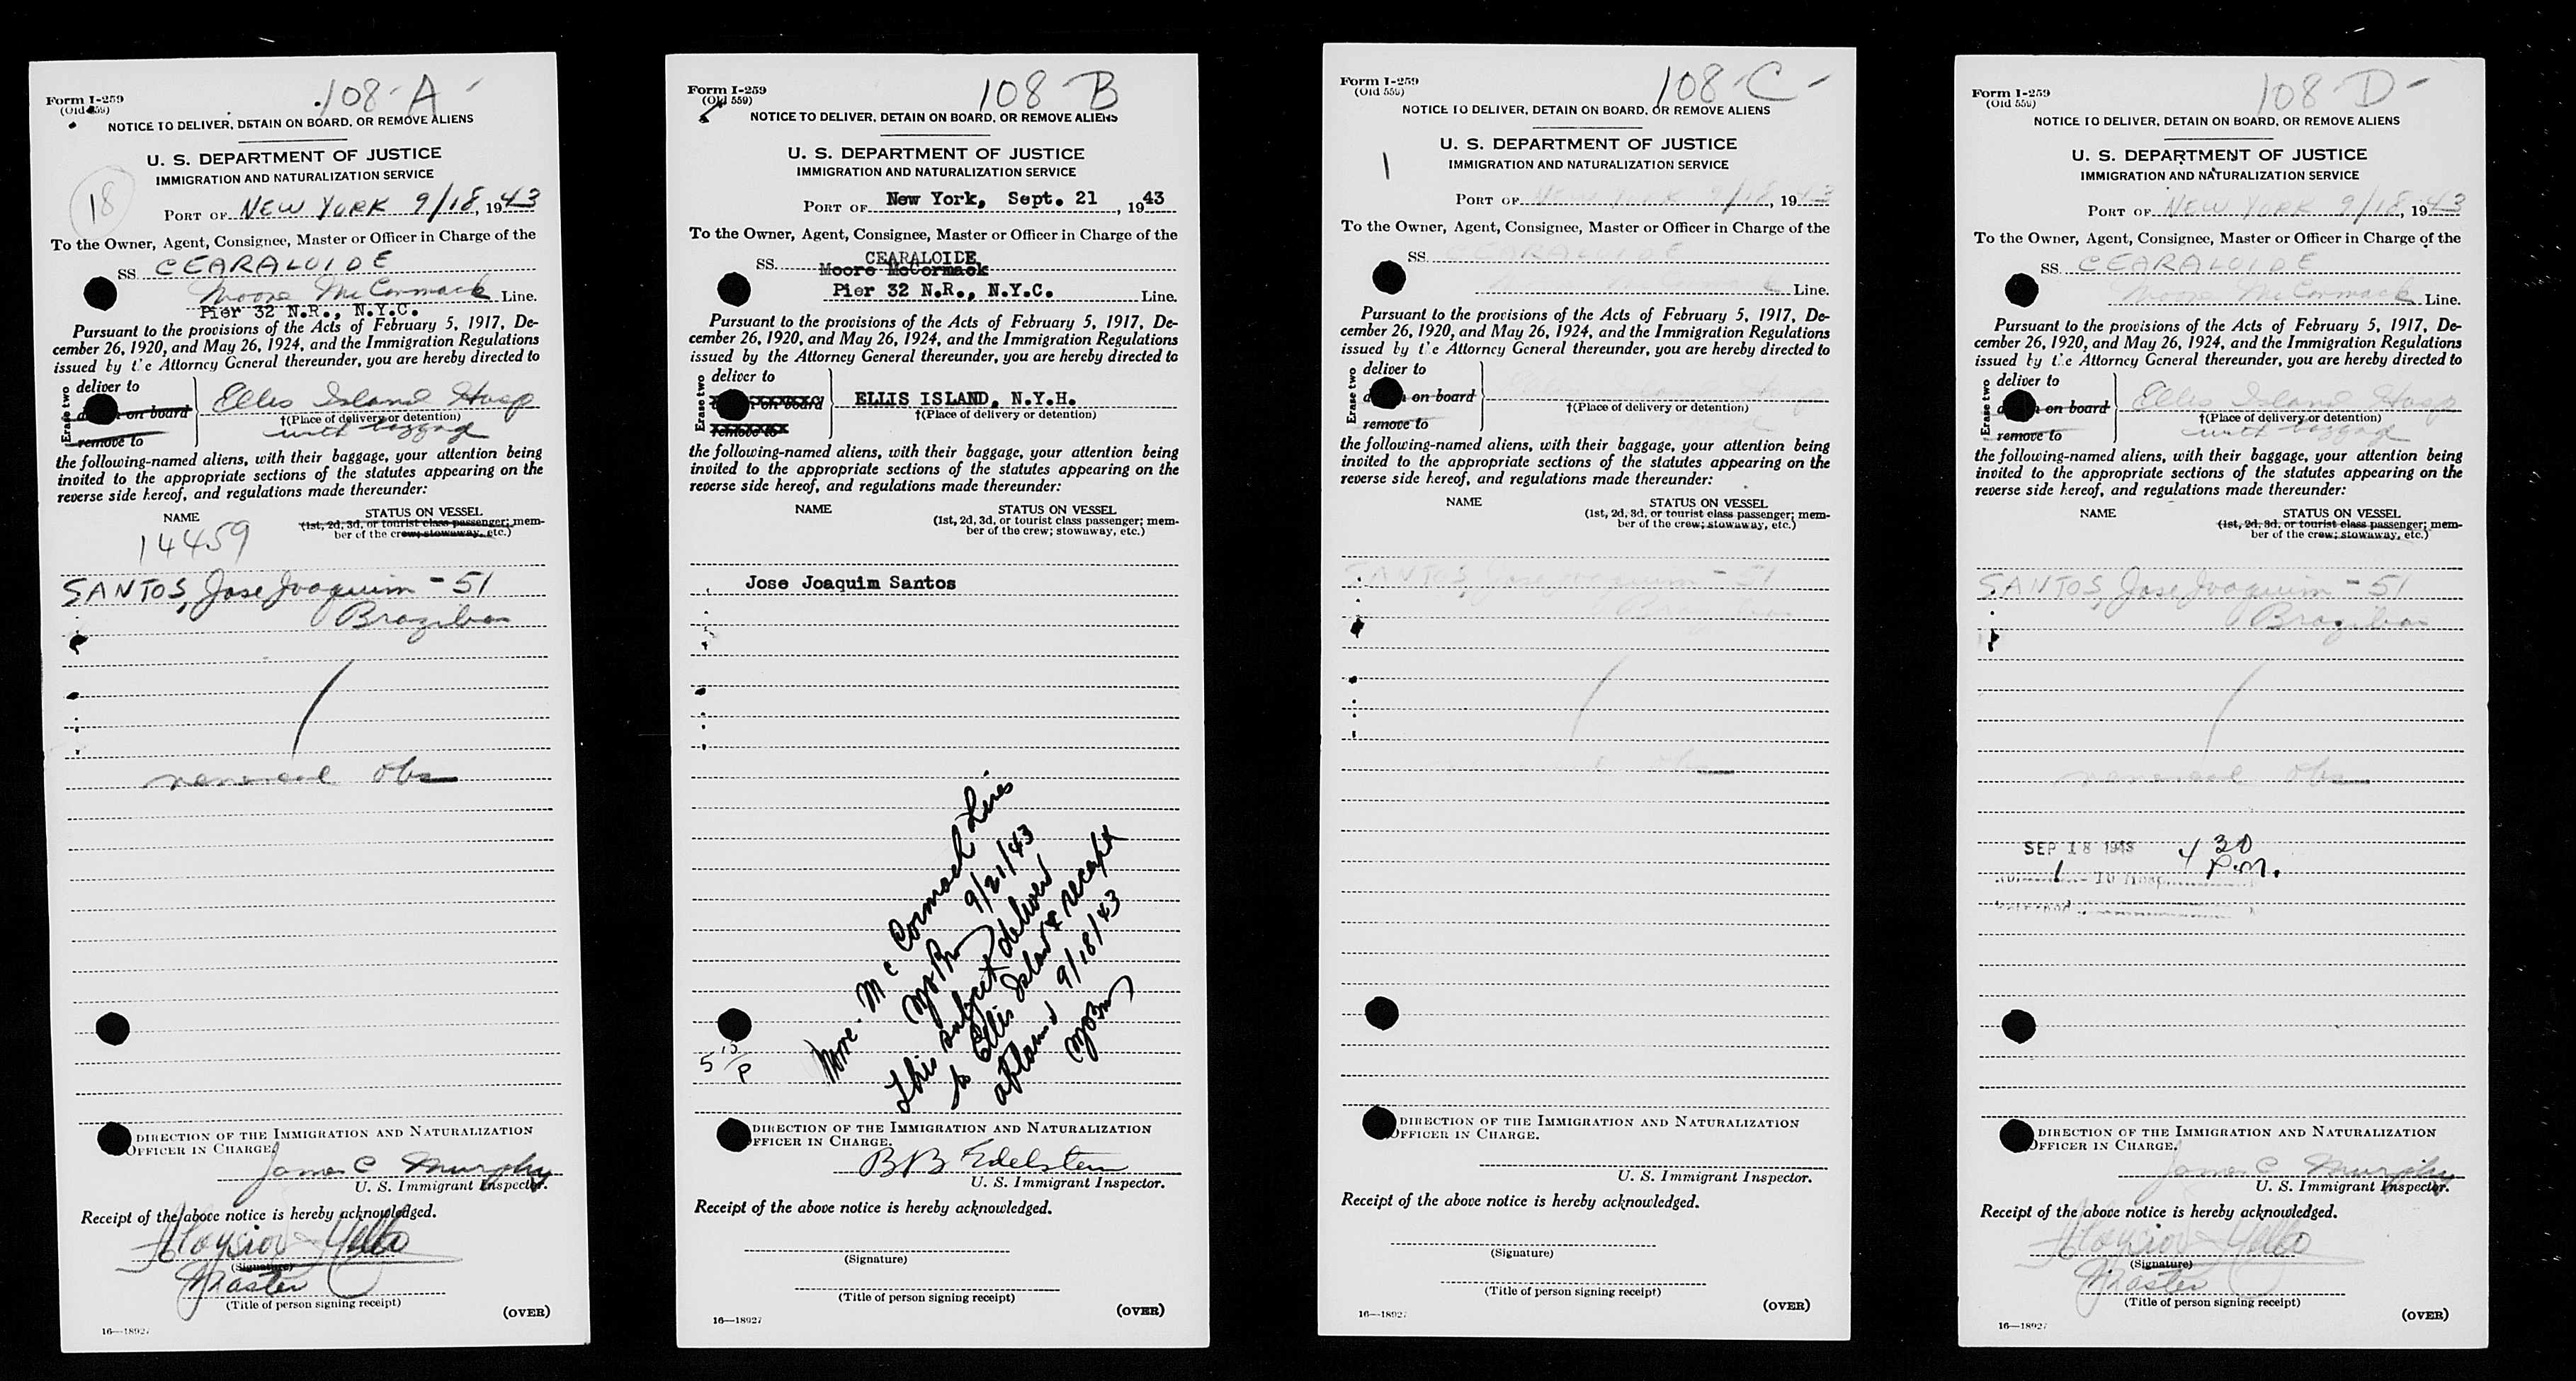 108-A
Form I-259
(Old 559)
NOTICE TO DELIVER, DETAIN ON BOARD, OR REMOVE ALIENS
U. S. DEPARTMENT OF JUSTICE
IMMIGRATION AND NATURALIZATION SERVICE
18
PORT OF NEW YORK 9/18, 1943
To the Owner, Agent, Consignee, Master or Officer in Charge of the
SS CEARALOIDE
Moore McCormack Line.
Pier 32 N.R., N.Y.C.
Pursuant to the provisions of the Acts of February 5, 1917, De-
cember 26, 1920, and May 26, 1924, and the Immigration Regulations
issued by the Attorney General thereunder, you are hereby directed to
Erase two
deliver to
on board
remove to
Ellis Island Hosp
†(Place of delivery or detention)
with baggage
the following-named aliens, with their baggage, your attention being
invited to the appropriate sections of the statutes appearing on the
reverse side hereof, and regulations made thereunder:
NAME STATUS ON VESSEL
(1st, 2d, 3d, or tourist class passenger; mem-
ber of the crew; stowaway, etc.)
14459
SANTOS, Jose Joaquim - 51
Brazilian
venereal obs
DIRECTION OF THE IMMIGRATION AND NATURALIZATION
OFFICER IN CHARGE.
James C Murphy
U. S. Immigrant Inspector.
Receipt of the above notice is hereby acknowledged.
(Signature)
Master
(Title of person signing receipt)
(OVER)
16—18927
108-B
Form I-259
(Old 559)
NOTICE TO DELIVER, DETAIN ON BOARD, OR REMOVE ALIENS
U. S. DEPARTMENT OF JUSTICE
IMMIGRATION AND NATURALIZATION SERVICE
PORT OF New York, Sept. 21, 1943
To the Owner, Agent, Consignee, Master or Officer in Charge of the
SS. CEARALOIDE
Moore McCormack
Pier 32 N.R., N.Y.C. Line.
Pursuant to the provisions of the Acts of February 5, 1917, De-
cember 26, 1920, and May 26, 1924, and the Immigration Regulations
issued by the Attorney General thereunder, you are hereby directed to
Erase two
deliver to
on board
remove to
ELLIS ISLAND, N.Y.H.
†(Place of delivery or detention)
the following-named aliens, with their baggage, your attention being
invited to the appropriate sections of the statutes appearing on the
reverse side hereof, and regulations made thereunder:
NAME STATUS ON VESSEL
(1st, 2d, 3d, or tourist class passenger; mem-
ber of the crew; stowaway, etc.)
Jose Joaquim Santos
Moore McCormack Lines
9/21/43
This subject delivered
to Ellis Island & receipt
obtained 9/18/43
5 15/P
DIRECTION OF THE IMMIGRATION AND NATURALIZATION
OFFICER IN CHARGE.
BB Edelstein
U. S. Immigrant Inspector.
Receipt of the above notice is hereby acknowledged.
(Signature)
(Title of person signing receipt)
(OVER)
16—18927
108-C
Form I-259
(Old 559)
NOTICE TO DELIVER, DETAIN ON BOARD, OR REMOVE ALIENS
U. S. DEPARTMENT OF JUSTICE
IMMIGRATION AND NATURALIZATION SERVICE
PORT OF New York 9/18, 1943
To the Owner, Agent, Consignee, Master or Officer in Charge of the
SS. CEARALOIDE
Line.
Pursuant to the provisions of the Acts of February 5, 1917, De-
cember 26, 1920, and May 26, 1924, and the Immigration Regulations
issued by the Attorney General thereunder, you are hereby directed to
Erase two
deliver to
on board
remove to
†(Place of delivery or detention)
the following-named aliens, with their baggage, your attention being
invited to the appropriate sections of the statutes appearing on the
reverse side hereof, and regulations made thereunder:
NAME STATUS ON VESSEL
(1st, 2d, 3d, or tourist class passenger; mem-
ber of the crew; stowaway, etc.)
SANTOS, Jose Joaquim - 51
DIRECTION OF THE IMMIGRATION AND NATURALIZATION
OFFICER IN CHARGE.
U. S. Immigrant Inspector.
Receipt of the above notice is hereby acknowledged.
(Signature)
(Title of person signing receipt)
(OVER)
16—18927
108-D
Form I-259
(Old 559)
NOTICE TO DELIVER, DETAIN ON BOARD, OR REMOVE ALIENS
U. S. DEPARTMENT OF JUSTICE
IMMIGRATION AND NATURALIZATION SERVICE
PORT OF NEW YORK 9/18, 1943
To the Owner, Agent, Consignee, Master or Officer in Charge of the
SS. CEARALOIDE
Moore McCormack Line.
Pursuant to the provisions of the Acts of February 5, 1917, De-
cember 26, 1920, and May 26, 1924, and the Immigration Regulations
issued by the Attorney General thereunder, you are hereby directed to
Erase two
deliver to
on board
remove to
Ellis Island Hosp
†(Place of delivery or detention)
with baggage
the following-named aliens, with their baggage, your attention being
invited to the appropriate sections of the statutes appearing on the
reverse side hereof, and regulations made thereunder:
NAME STATUS ON VESSEL
(1st, 2d, 3d, or tourist class passenger; mem-
ber of the crew; stowaway, etc.)
SANTOS, Jose Joaquim - 51
Brazilian
venereal obs
SEP 18 1943 4 30
1 To Hosp. P.M.
DIRECTION OF THE IMMIGRATION AND NATURALIZATION
OFFICER IN CHARGE.
James C Murphy
U. S. Immigrant Inspector.
Receipt of the above notice is hereby acknowledged.
(Signature)
Master
(Title of person signing receipt)
(OVER)
16—18927